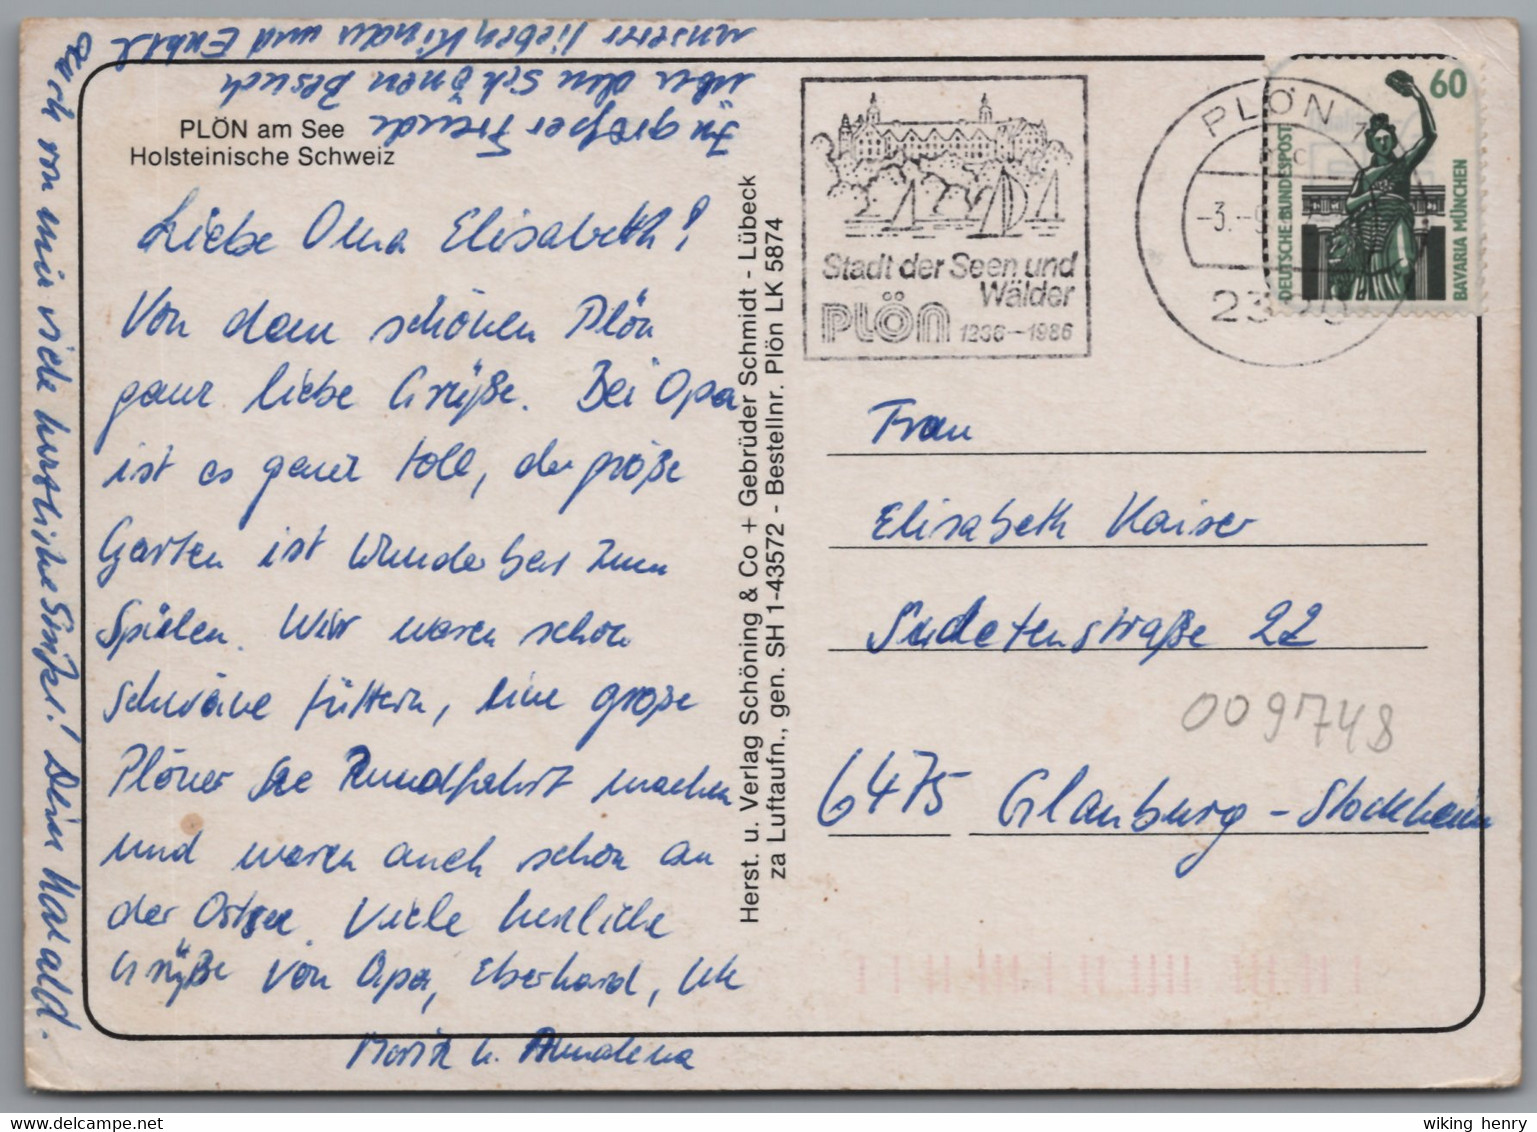 PLÖN am See
Holsteinische Schweiz
Liebe Oma Elisabeth!
Von dem schönen Plön
ganz liebe Grüße. Bei Opa
ist es ganz toll, der große
Garten ist wunderbar zum
Spielen. Wir waren schon
Schwäne füttern, eine große
Plöner See Rundfahrt machen
und waren auch schon an
der Ostsee. Viele herzliche
Grüße von Opa, Eberhard, Ute
Moritz u. Annalena
In großer Freude
über den schönen Besuch
unserer lieben Kinder und Enkel
Auch von mir viele herzliche Grüße! Dein Harald.
Herst. u. Verlag Schöning & Co + Gebrüder Schmidt - Lübeck
za Luftaufn., gen. SH 1-43572 - Bestellnr. Plön LK 5874
Stadt der Seen und
Wälder
PLÖN 1236-1986
PLÖN
-3.-9
60
DEUTSCHE BUNDESPOST
BAVARIA MÜNCHEN
Frau
Elisabeth Kaiser
Sudetenstraße 22
009748
6475 Glauburg-Stockheim
wiking henry